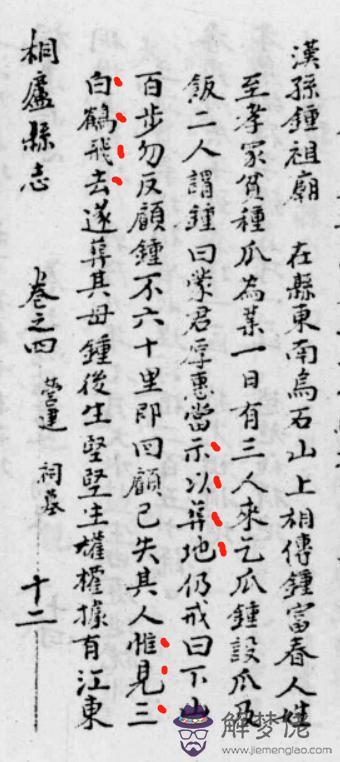 漢孫鍾祖廟 在縣東南烏石山上相傳鍾富春人性
至孝家貧種瓜為業一日有三人來乞瓜鍾設瓜及
飯二人謂鍾曰蒙君厚惠當示以葬地仍戒曰下山
百步勿反顧鍾不六十里即回顧已失其人惟見三
白鶴飛去遂葬其母鍾後生堅堅生權權據有江東
桐廬縣志 卷之四 營建 祠墓 十二
解梦佬
www.jiemenglao.com